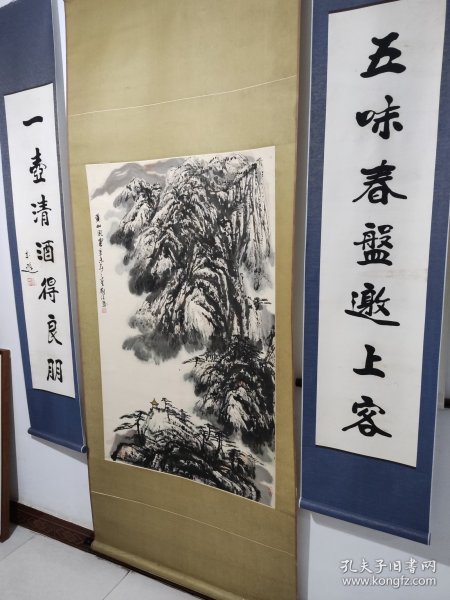 五味春盤邀上客
一壺清酒得良朋
孔夫子旧书网
www.kongfz.com